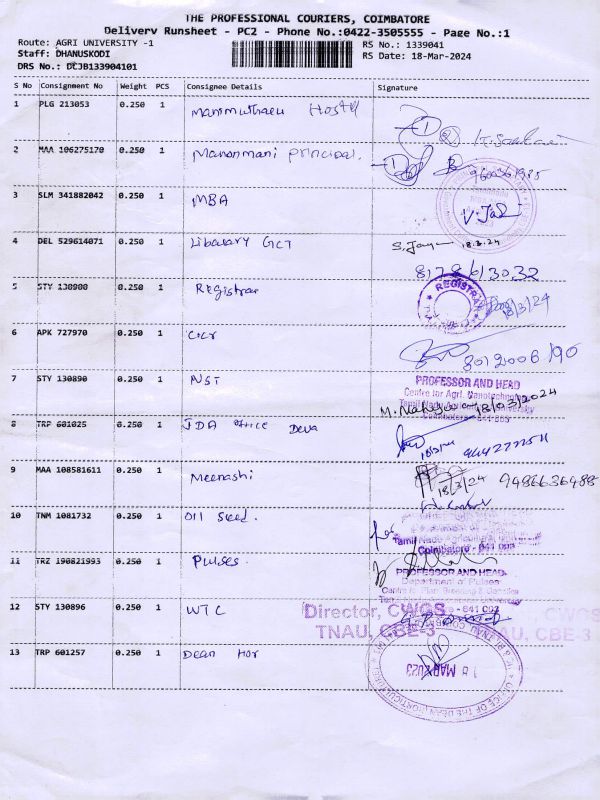 THE PROFESSIONAL COURIERS, COIMBATORE
Delivery Runsheet - PC2 - Phone No.:0422-3505555 - Page No.:1
Route: AGRI UNIVERSITY -1
RS No.: 1339041
Staff: DHANUSKODI
RS Date: 18-Mar-2024
DRS No.: DCJB133904101
S No Consignment No Weight PCS Consignee Details Signature
1 PLG 213053 0.250 1 Hostel
2 MAA 106275170 0.250 1 Manonmani principal.
3 SLM 341882042 0.250 1 MBA
V. Jai
4 DEL 529614071 0.250 1 Libavary GCT
18.3.24
5 STY 130900 0.250 1 Registrar
REGISTRAR
18/3/24
6 APK 727970 0.250 1
7 STY 130890 0.250 1 NST
PROFESSOR AND HEAD
Centre for Agrl. Nanotechnology
Tamil Nadu Agricultural University
18/03/2024
8 TRP 601025 0.250 1 JDA office Deva
9 MAA 108581611 0.250 1 Meenashi
18/3/24 9486636488
10 TNM 1081732 0.250 1 Oil Seed.
Tamil Nadu Agricultural University
Coimbatore - 641 003
11 TRZ 190821993 0.250 1 Pulses.
PROFESSOR AND HEAD
Department of Pulses
Centre for Plan Breeding & Genetics
12 STY 130896 0.250 1 WTC
Director, CWGS
TNAU, CBE-3
13 TRP 601257 0.250 1 Dean Hor
OFFICE OF THE DEAN (HORTICULTURE)